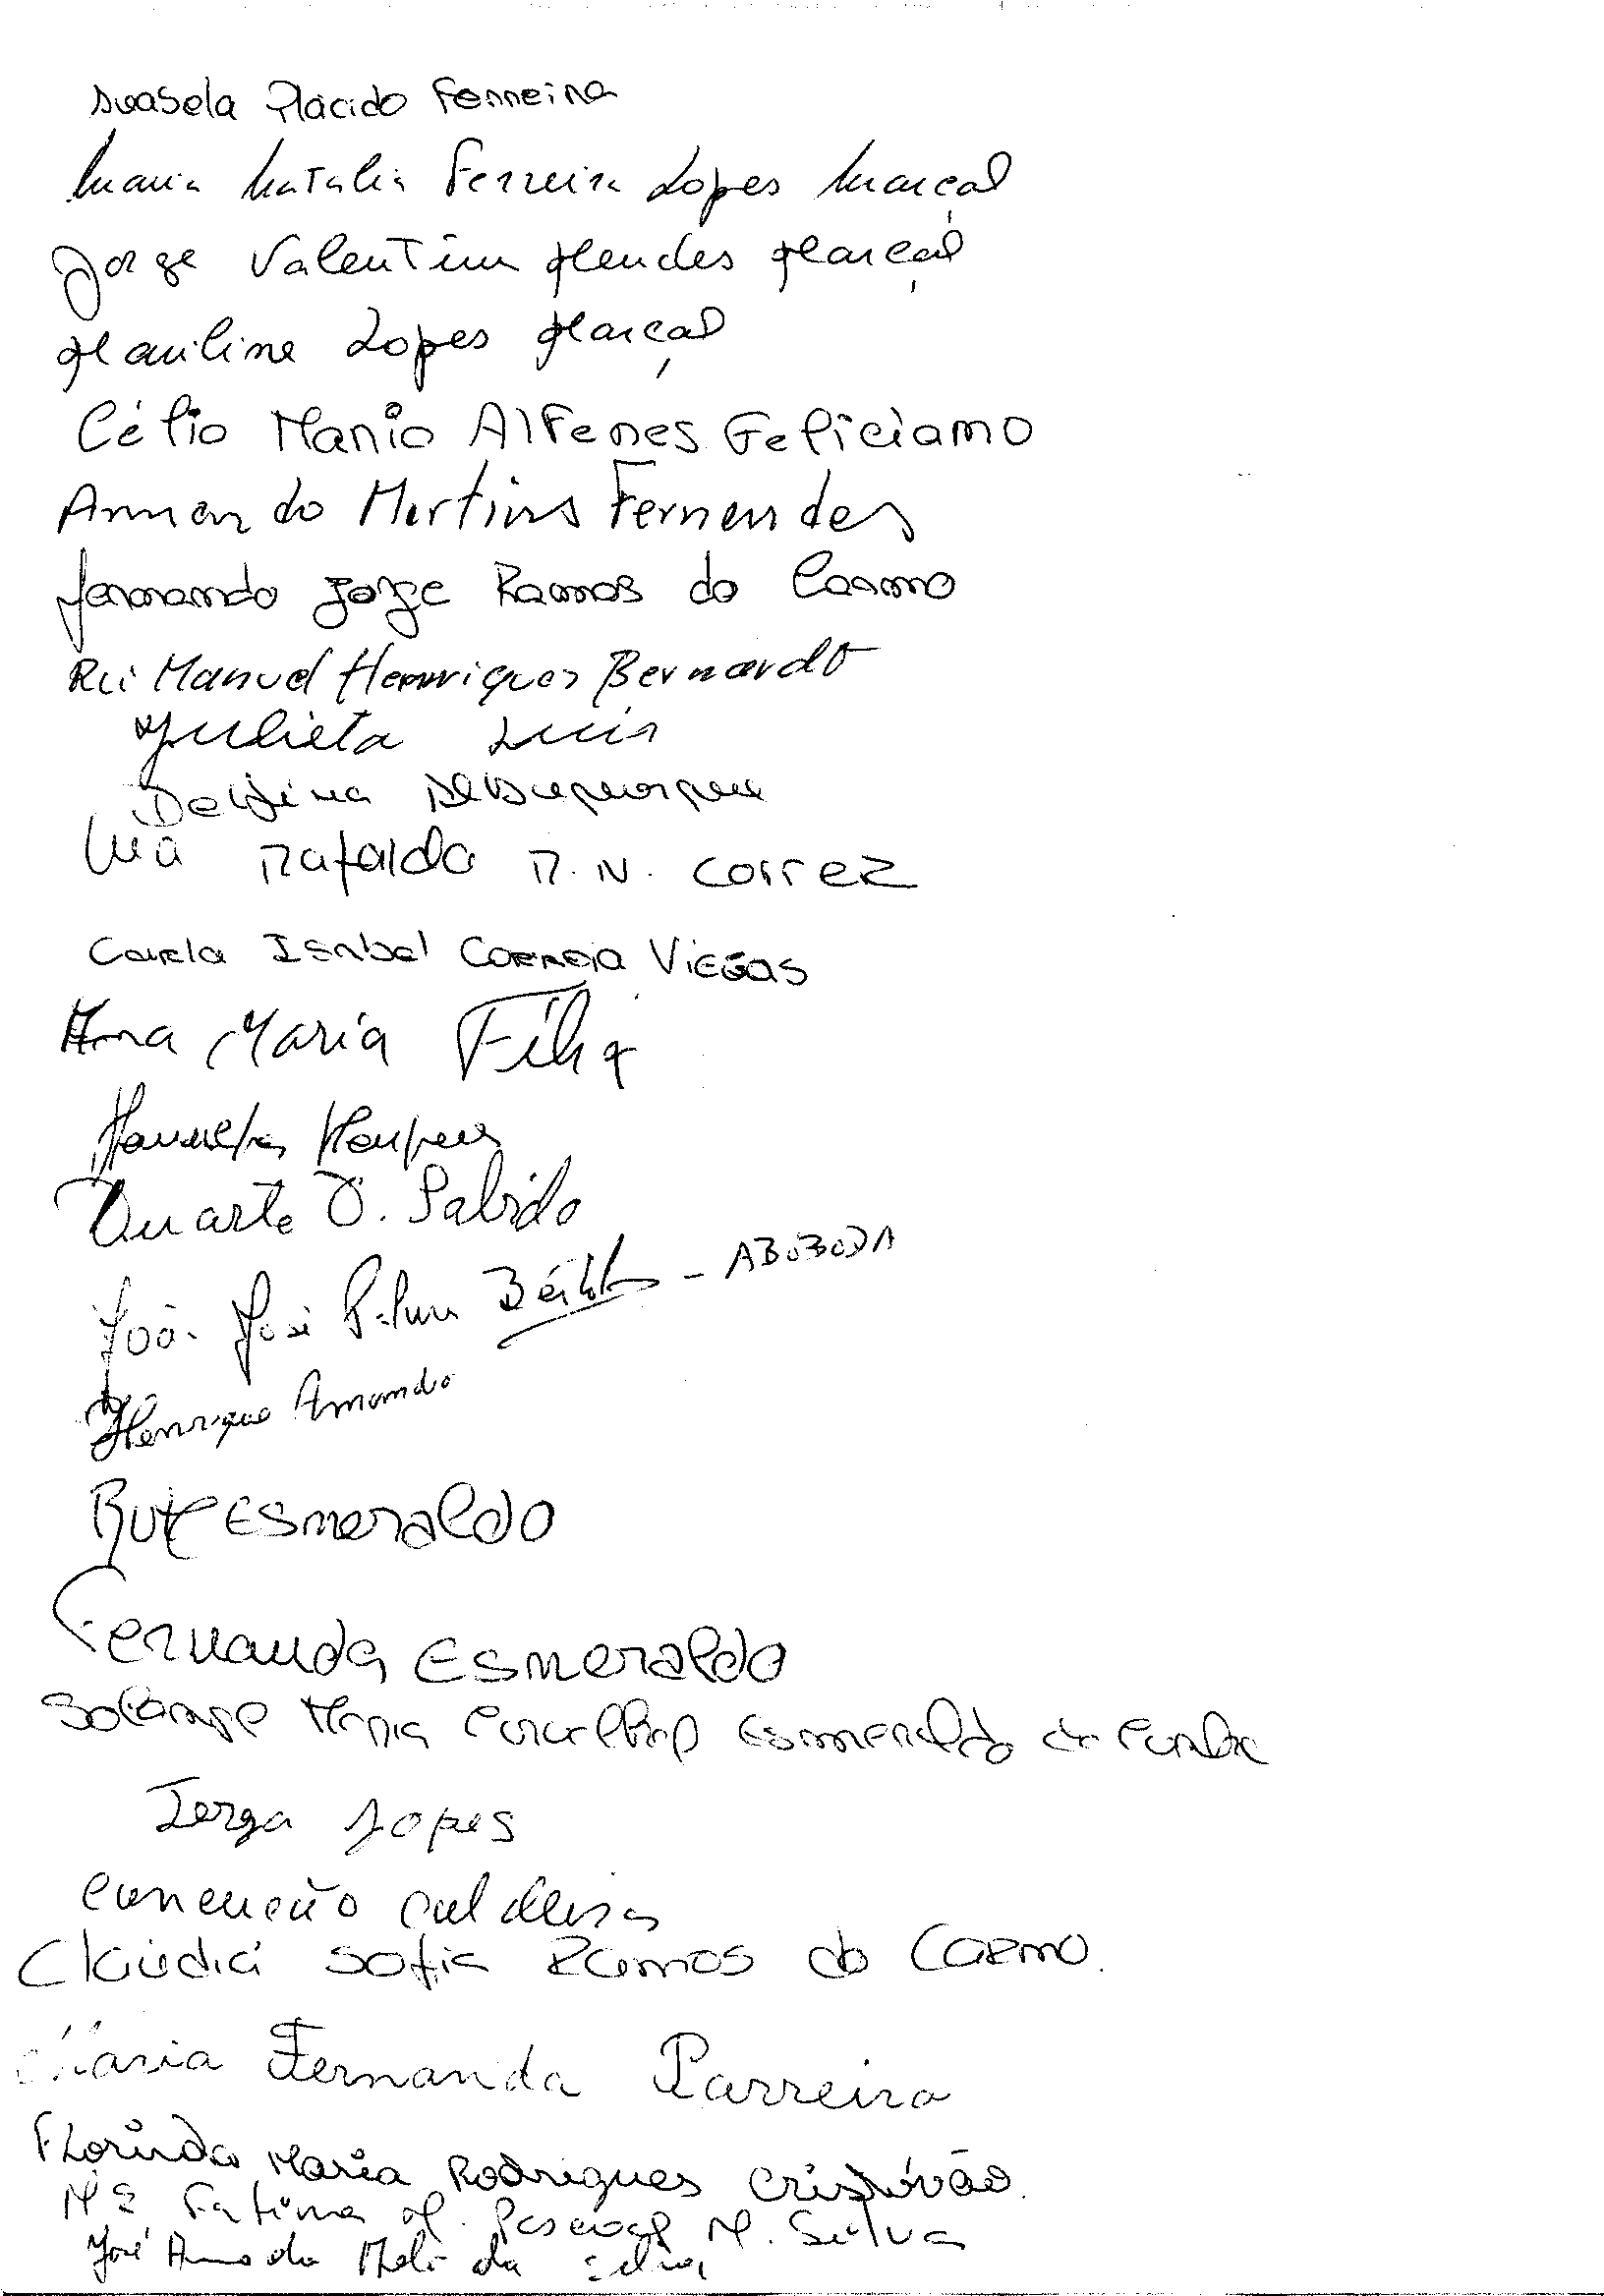 Plácido Ferreira
Maria Natalia Ferreira Lopes Marçal
Jorge Valentim Mendes Marçal
Mariline Lopes Marçal
Célio Mario Alfenes Feliciano
Armando Martins Fernandes
Fernando Jorge Ramos do Carmo
Rui Manuel Henriques Bernardo
Julieta Luis
Delfina Albuquerque
Mafalda M. N. Correz
Carla Isabel Correia Viegas
Ana Maria
Duarte O. Salrido
João José - ABOBODA
Henrique Amando
Rute Esmeraldo
Fernanda Esmeraldo
Solange Maria Esmeraldo da Cunha
Lopes
Conceição Caldeira
Claúdia Sofia Ramos do Carmo.
Maria Fernanda Parreira
Florinda Maria Rodrigues Cristóvão.
Mª Fatima M. Pascoal M. Silva
José da Silva